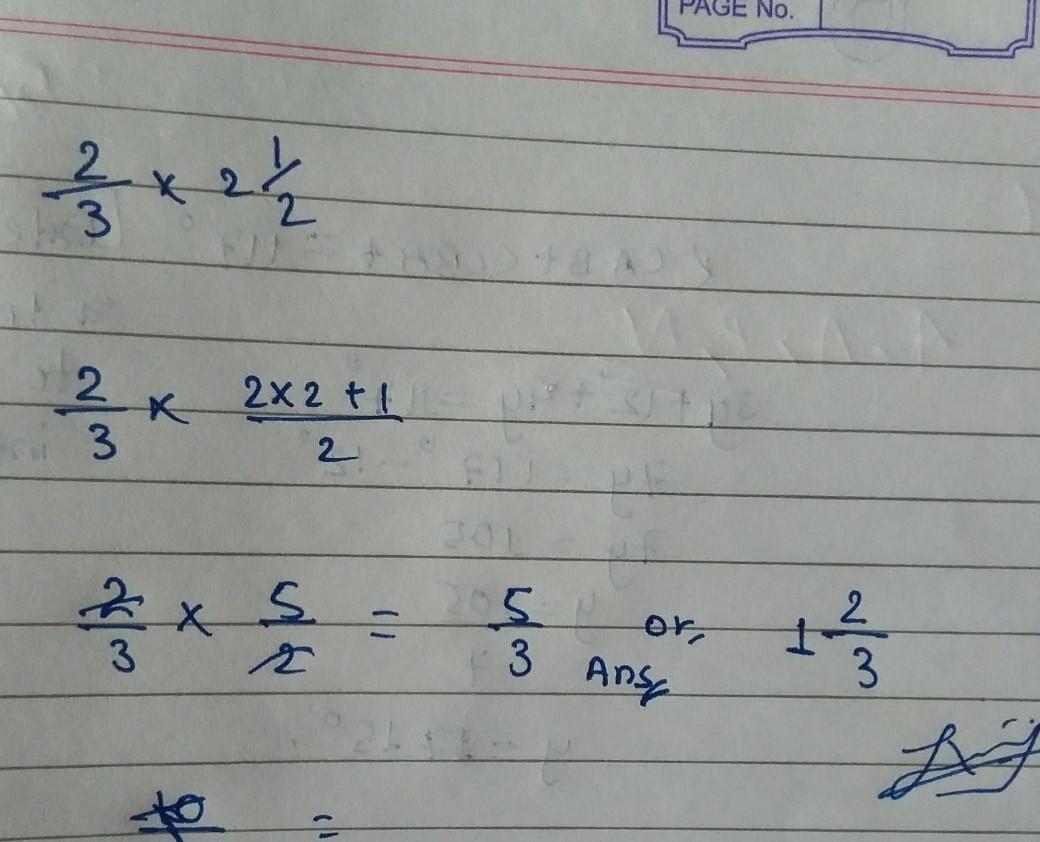 PAGE No.
2/3 x 2 1/2
2/3 x (2x2+1)/2
2/3 x 5/2 = 5/3 or, 1 2/3
Ans
=